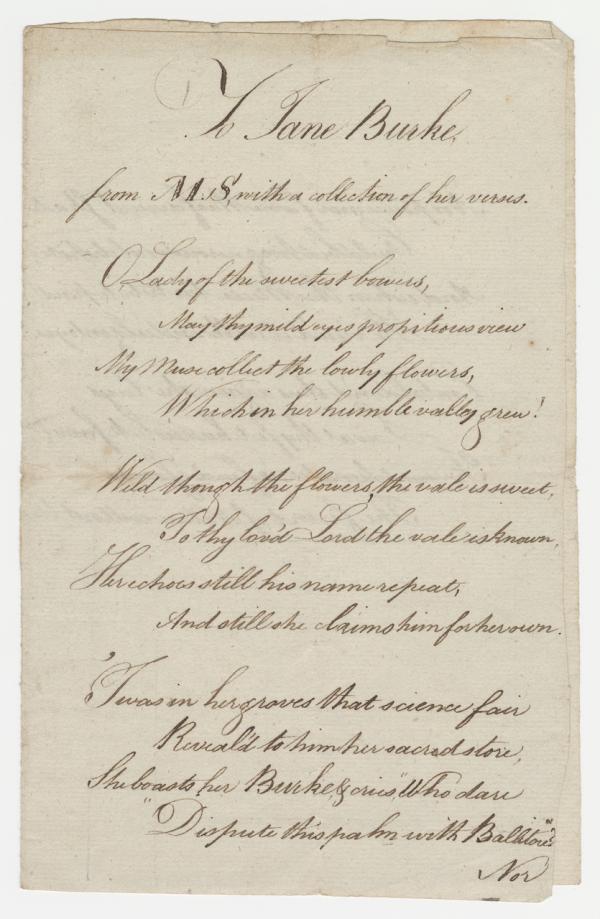 1
To Jane Burke,
from M. S, with a collection of her verses.
O Lady of the sweetest bowers,
May thy mild eyes propitious view
My Muse collect the lowly flowers,
Which in her humble valley grew!
Wild though the flowers, the vale is sweet,
To thy lov'd Lord the vale is known,
Her echoes still his name repeat,
And still she claims him for her own.
'Twas in her groves that science fair
Reveal'd to him her sacred store,
She boasts her Burke, & cries, "Who dare
"Dispute this palm with Balitore"?
Nor